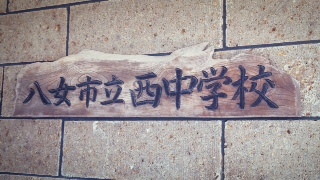 八女市立西中学校